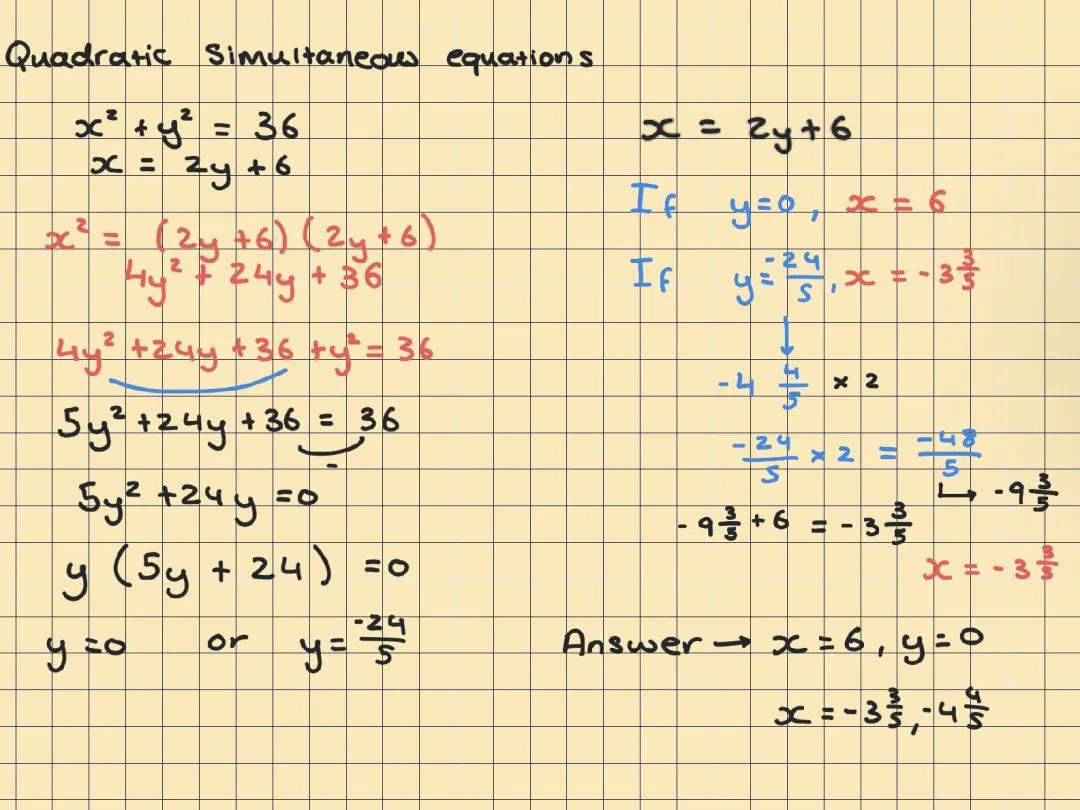 Quadratic Simultaneous equations
x² + y² = 36
x = 2y + 6
x² = (2y + 6) (2y + 6)
4y² + 24y + 36
4y² + 24y + 36 + y² = 36
5y² + 24y + 36 = 36
-
5y² + 24y = 0
y (5y + 24) = 0
y = 0 or y = -24/5
x = 2y + 6
If y = 0, x = 6
If y = -24/5, x = -3 3/5
↓
-4 4/5 × 2
-24/5 × 2 = -48/5
↳ -9 3/5
-9 3/5 + 6 = -3 3/5
x = -3 3/5
Answer → x = 6, y = 0
x = -3 3/5, -4 4/5